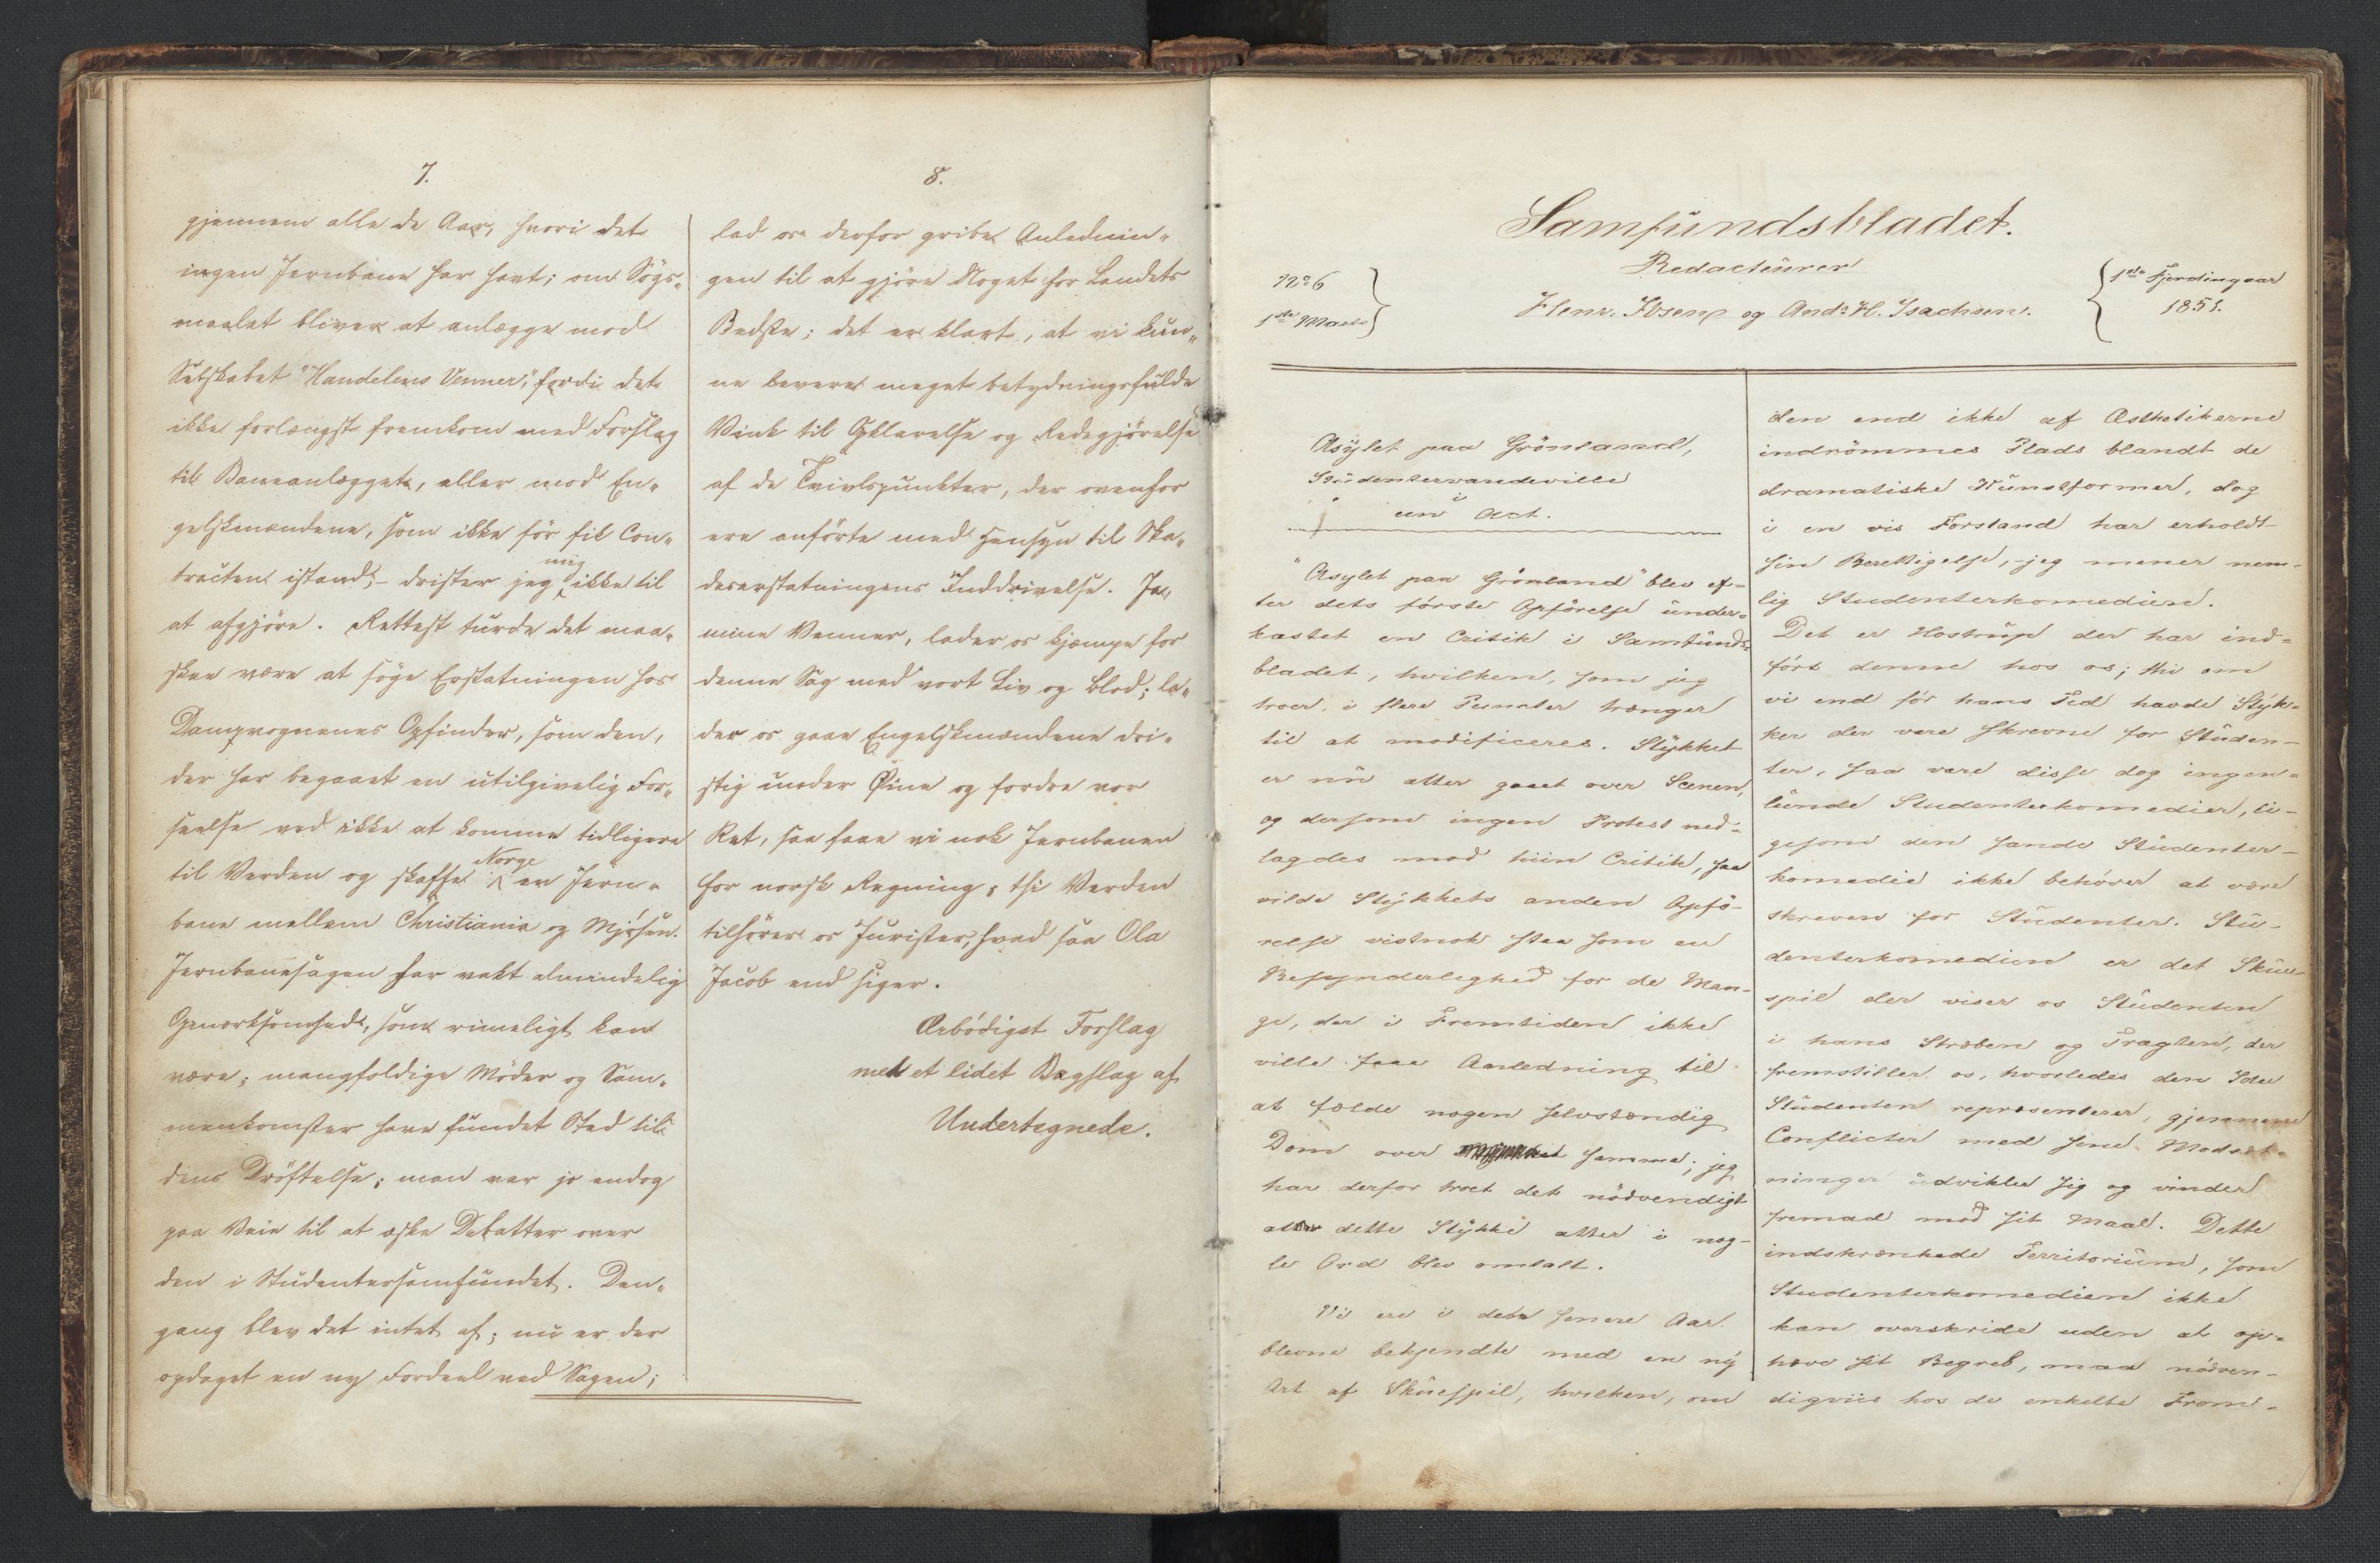 7.
gjennem alle de Aar, hvori det
ingen Jernbane har havt; om Søgs-
maalet bliver at anlægge mod
Selskabet "Handelens Venner," fordi det
ikke forlængst fremkom med Forslag
til Baneanlægget, eller mod En-
gelskmændene, som ikke før fik Con-
tracten istand, – drister jeg mig ikke til
at afgjøre. Rettest turde det maa-
skee være at søge Erstatningen hos
Dampvognenes Opfinder, som den,
der har begaaet en utilgivelig For-
seelse ved ikke at komme tidligere
til Verden og skaffe Norge en Jern-
bane mellem Christiania og Mjøsen.
Jernbanesagen har vakt almindelig
Opmærksomhed, som rimeligt kan
være; mangfoldige Møder og Sam-
menkomster have fundet Sted til
dens Drøftelse; man var jo endog
paa Veie til at æske Debatter over
den i Studentersamfundet. Den-
gang blev det intet af; nu er der
opdaget en ny Fordeel ved Sagen;
8.
lad os derfor gribe Anlednin-
gen til at gjøre Noget for Landets
Bedste; det er klart, at vi kun-
ne levere meget betydningsfulde
Vink til Opklarelse og Redegjørelse
af de Tvivlspunkter, der ovenfor
ere anførte med Hensyn til Ska-
deserstatningens Inddrivelse. Ja,
mine Venner, lader os kjæmpe for
denne Sag med vort Liv og Blod; la-
der os gaae Engelskmændene dri-
stig under Øine og fordre vor
Ret, saa faae vi nok Jernbanen
for norsk Regning; thi Verden
tilhører os Jurister, hvad saa Ola
Jacob end siger.
Ærbødigst Forslag
med et lidet Bagslag af
Undertegnede.
Samfundsbladet.
Redacteurer
No 6
1ste Marts
Henr. Ibsen og Andr. H. Isachsen.
1ste Fjerdingaar
1851.
Asylet paa Grönland,
Studentervaudeville
i
een Act.
"Asylet paa Grönland" blev ef-
ter dets förste Opförelse under-
kastet en Critik i Samfunds-
bladet, hvilken, som jeg
troer, i flere Puncter trænger
til at modificeres. Stykket
er nu atter gaaet over Scenen,
og dersom ingen Protest ned-
lagdes mod hiin Critik, saa
vilde Stykkets anden Opfö-
relse vistnok staa som en
Besynderlighed for de Man-
ge, der i Fremtiden ikke
ville faae Anledning til
at fælde nogen selvstændig
Dom over samme; jeg
har derfor troet det nödvendigt
at dette Stykke atter i nog-
le Ord blev omtalt.
Vi ere i de senere Aar
blevne bekjendte med en ny
Art af Skuespil, hvilken, om
den end ikke af Æsthetikerne
indrömmes Plads blandt de
dramatiske Kunstformer, dog
i en vis Forstand har erholdt
sin Berettigelse, jeg mener nem-
lig Studenterkomedien.
Det er Hostrup der har ind-
fört denne hos os; thi om
vi end för hans Tid havde Styk-
ker der vare skrevne for Studen-
ter, saa vare disse dog ingen-
lunde Studenterkomedier, li-
gesom den sande Studenter-
komedie ikke behöver at være
skreven for Studenter. Stu-
denterkomedien er det Skue-
spil der viser os Studenten
i hans Stræben og Tragten, der
fremstiller os, hvorledes den Idee
Studenten repræsenterer, gjennem
Conflicter med sine Modsæt-
ninger udvikler sig og vinder
fremad mod sit Maal. Dette
indskrænkede Territorium, som
Studenterkomedien ikke
kan overskride uden at op-
hæve sit Begreb, maa nödven-
digviis hos de enkelte Frem-